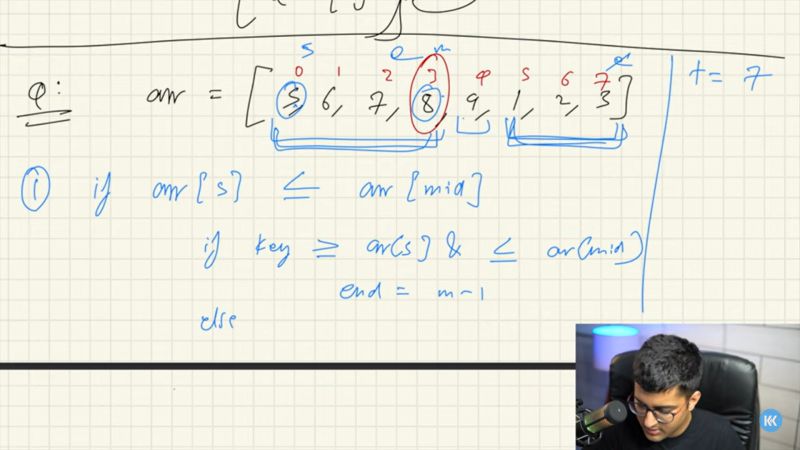 s e m e
0 1 2 3 4 5 6 7
Q: arr = [ 5, 6, 7, 8, 9, 1, 2, 3 ] t = 7
i if arr [s] ≤ arr [mid]
if key ≥ ar(s] & ≤ ar(mid)
end = m-1
else
K